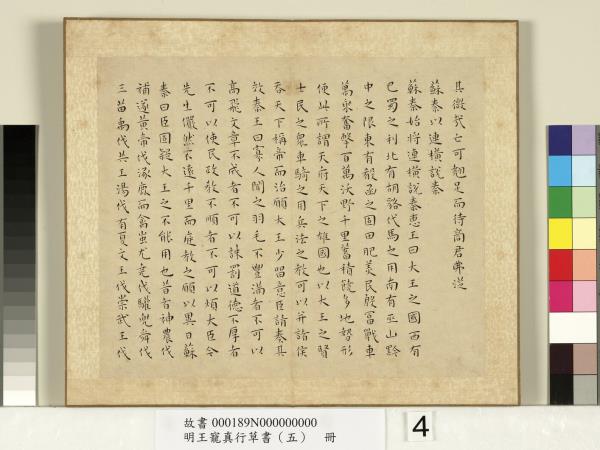 其微哉亡可翹足而待商君弗從
蘇秦以連橫說秦
蘇秦始將連橫說秦惠王曰大王之國西有
巴蜀之利北有胡貉代馬之用南有巫山黔
中之限東有殽函之固田肥美民殷富戰車
萬乘奮擊百萬沃野千里蓄積饒多地勢形
便此所謂天府天下之雄國也以大王之賢
士民之眾車騎之用兵法之教可以并諸侯
吞天下稱帝而治願大王少留意臣請奏其
效秦王曰寡人聞之羽毛不豐滿者不可以
高飛文章不成者不可以誅罰道德不厚者
不可以使民政教不順者不可以煩大臣今
先生儼然不遠千里而庭教之願以異日蘇
秦曰臣固疑大王之不能用也昔者神農伐
補遂黃帝伐涿鹿而禽蚩尤堯伐驩兜舜伐
三苗禹伐共工湯伐有夏文王伐崇武王伐
故書 000189N000000000
明王寵真行草書（五） 冊
4